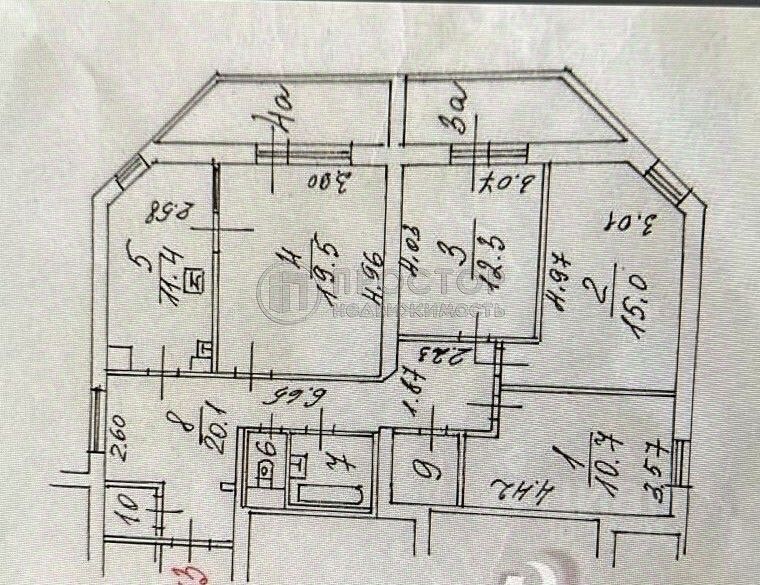 4а
3а
2.58
3.90
3.07
3.01
5
11.4
4
19.5
4.96
4.03
3
12.3
4.97
2
15.0
ПРОСТОР
НЕДВИЖИМОСТЬ
2.23
6.65
1.87
2.60
8
20.1
6
7
9
4.42
1
10.7
3.57
10